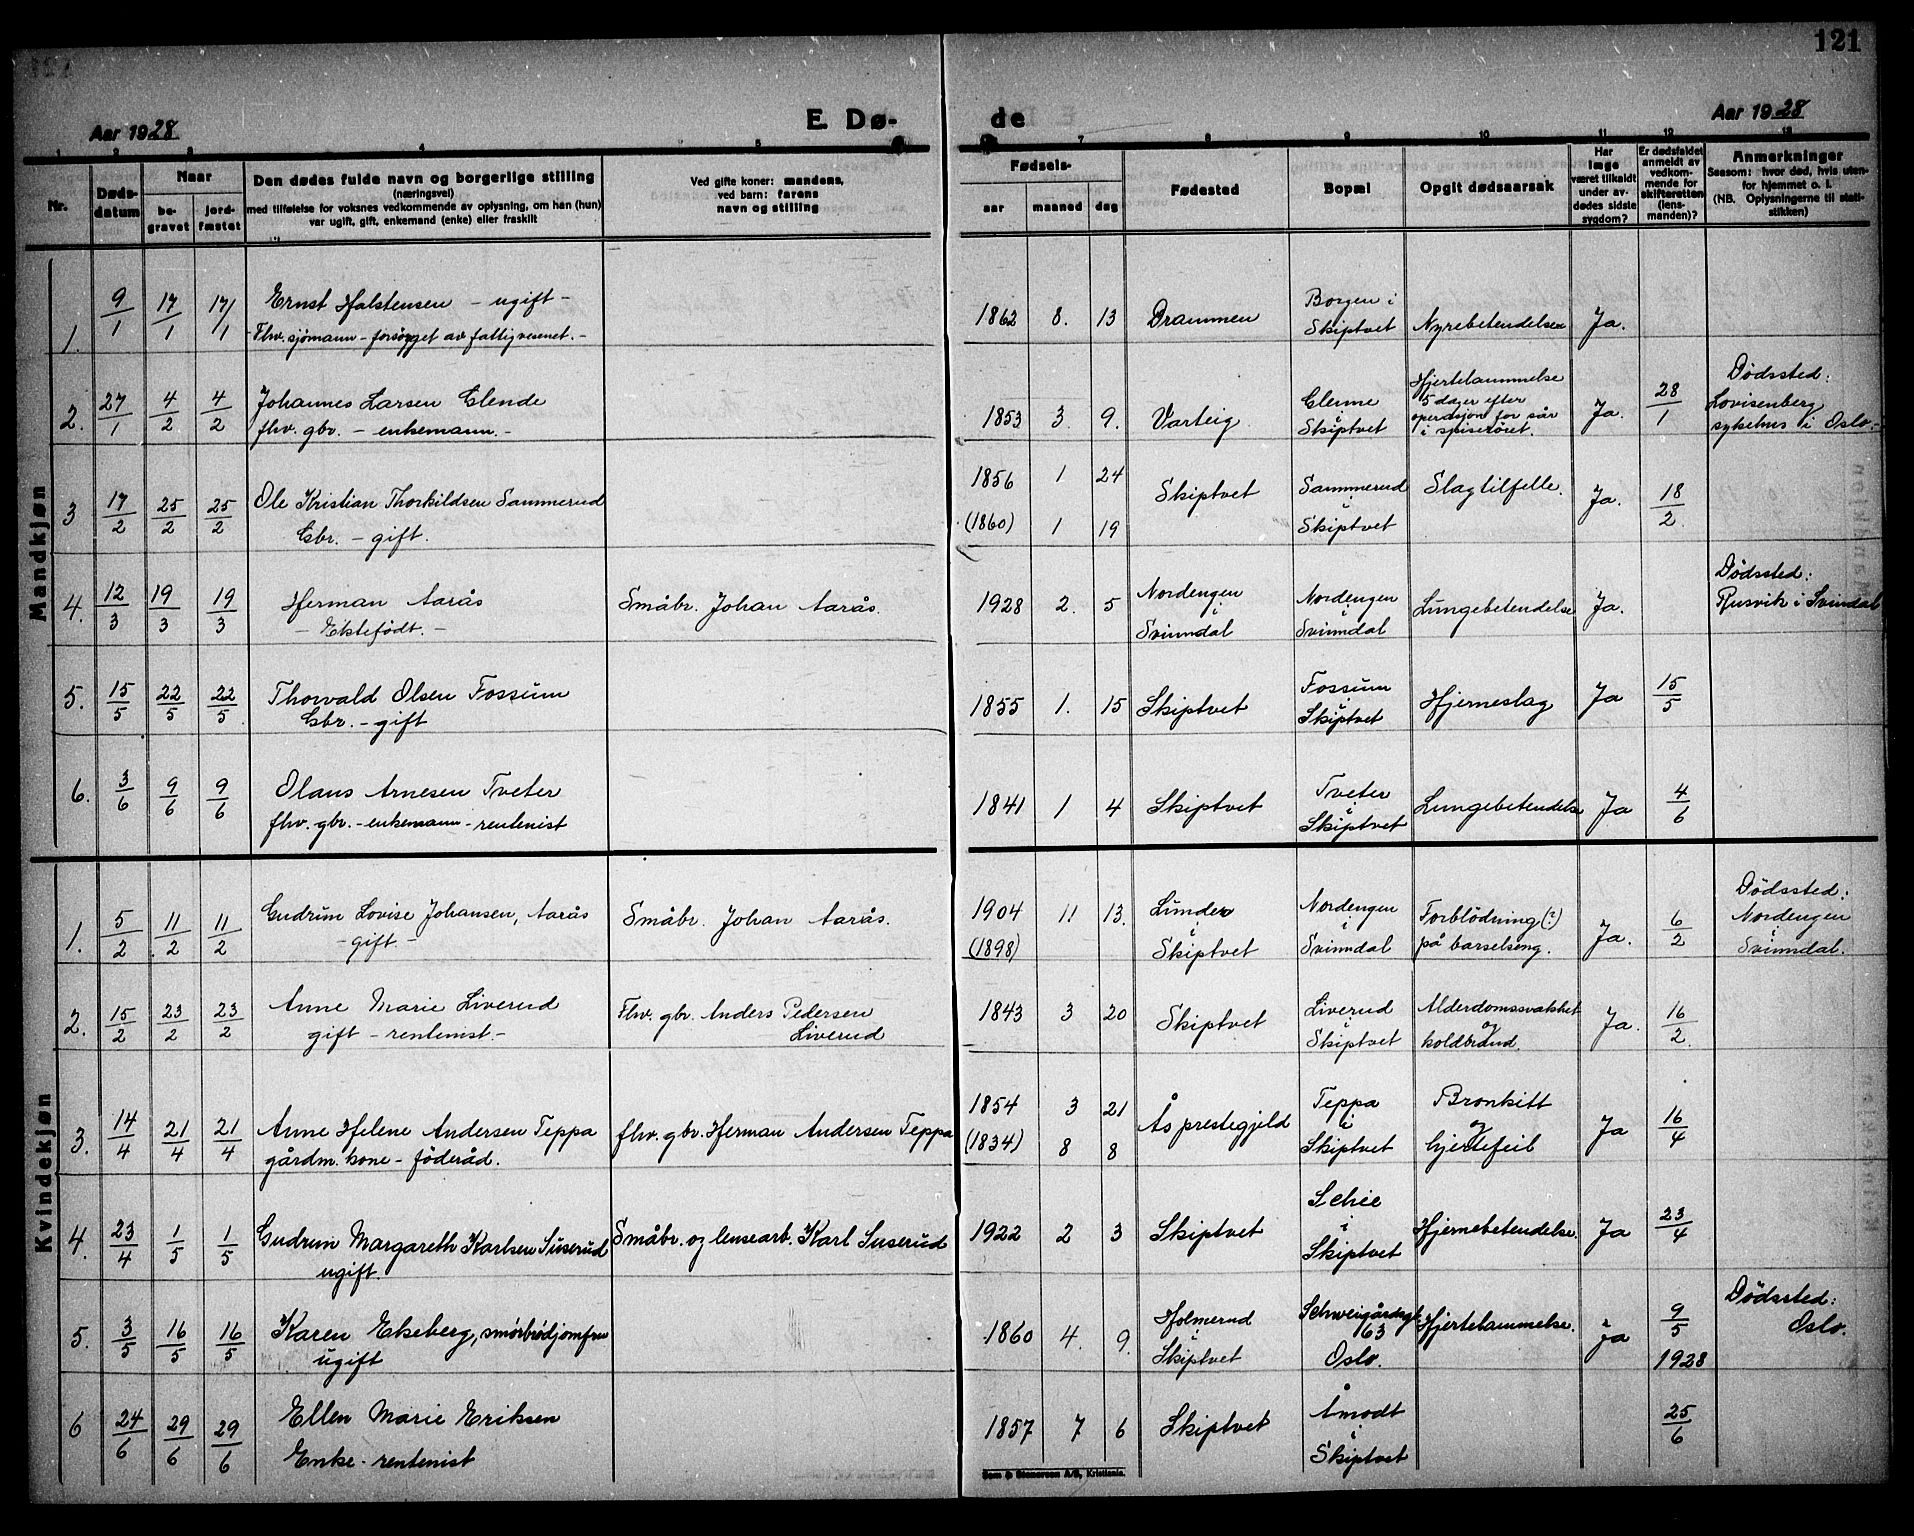 121
Aar 1928
E. Dø-
de
Aar 1928
1 2 3 4 5 7 8 9 10 11 12 13
Nr.
Døds-
datum
Naar
be-
gravet
jord-
fæstet
Den dødes fulde navn og borgerlige stilling
(næringsvei)
med tilføielse for voksnes vedkommende av oplysning, om han (hun)
var ugift, gift, enkemand (enke) eller fraskilt
Ved gifte koner: mandens,
ved barn: farens
navn og stilling
Fødsels-
aar maaned dag
Fødested
Bopæl
Opgit dødsaarsak
Har
læge
været tilkaldt
under av-
dødes sidste
sygdom?
Er dødsfaldet
anmeldt av
vedkom-
mende for
skifteretten
(lens-
manden)?
Anmerkninger
Saasom: hvor død, hvis uten-
for hjemmet o. l.
(NB. Oplysningerne til stati-
stikken)
Mandkjøn
1. 9/1 17/1 17/1 Ernst Halstensen - ugift -
- Fhv. sjömann - forsörget av fattigvesenet. -
1862 8. 13 Drammen
Borgen i
Skiptvet
Nyrebetendelsen
Ja.
2. 27/1 4/2 4/2 Johannes Larsen Glende
fhv. gbr. - enkemann. -
1853 3. 9. Varteig
Glenne
i
Skiptvet
Hjertelammelse
5 dager efter
operasjon for sår
i spiseröret.
Ja.
28/1
Dödssted:
Lovisenberg
sykehus i Oslo. -
3 17/2 25/2 25/2 Ole Kristian Thorkildsen Sammerud
Gbr. - gift.
1856 1 24
(1860) 1 19
Skiptvet
Sammerud
i
Skiptvet
Slagtilfelle.
Ja.
18/2.
4. 12/3 19/3 19/3 Herman Aarås
- Ektefödt. -
Småbr. Johan Aarås.
1928 2. 5
Nordengen
i
Svinndal
Nordengen
i
Svinndal
Lungebetendelse
Ja.
Dödssted:
Rusvik i Svindal
5. 15/5 22/5 22/5 Thorvald Olsen Fossum
Gbr. - gift
1855 1. 15 Skiptvet
Fossum
i
Skiptvet
Hjerneslag
Ja
15/5
6. 3/6 9/6 9/6 Olaus Arnesen Tveter
fhv. gbr. - enkemann - rentenist
1841 1 4 Skiptvet
Tveter
i
Skiptvet
Lungebetendelse
Ja
4/6
Kvindekjøn
1. 5/2 11/2 11/2 Gudrun Lovise Johansen, Aarås
- gift -
Småbr. Johan Aarås.
1904 11 13.
(1898)
Lunder
i
Skiptvet
Nordengen
i
Svinndal
Forblödning (?)
på barselseng.
Ja.
6/2
Dödssted:
Nordengen
i
Svinndal.
2. 15/2 23/2 23/2 Anne Marie Liverud
gift - rentenist -
Fhv. gbr. Anders Pedersen
Liverud
1843 3 20 Skiptvet
Liverud
i
Skiptvet
Alderdomssvakhet
og
koldbrand.
Ja.
16/2.
3. 14/4 21/4 21/4 Anne Helene Andersen Teppa
gårdm. kone - föderåd.
fhv. gbr. Herman Andersen Teppa
1854 3 21
(1834) 8 8
Ås prestegjeld
Teppa
i
Skiptvet
Bronkitt
og
hjertefeil
Ja
16/4
4. 23/4 1/5 1/5 Gudrun Margareth Karlsen Suserud
ugift.
Småbr. og lensearb. Karl Suserud
1922 2 3 Skiptvet
Schie
i
Skiptvet
Hjernebetendelse.
Ja
23/4
5. 3/5 16/5 16/5 Karen Ekeberg, smörbrödjomfru
ugift
1860 4. 9.
Holmerud
i
Skiptvet
Schweigårdsgt.
63
Oslo.
Hjertelammelse.
Ja
9/5
1928
Dödssted:
Oslo.
6 24/6 29/6 29/6 Ellen Marie Eriksen
Enke - rentenist
1857 7 6 Skiptvet
Åmodt
i
Skiptvet
25/6
Sem & Stenersen A/S, Kristiania.